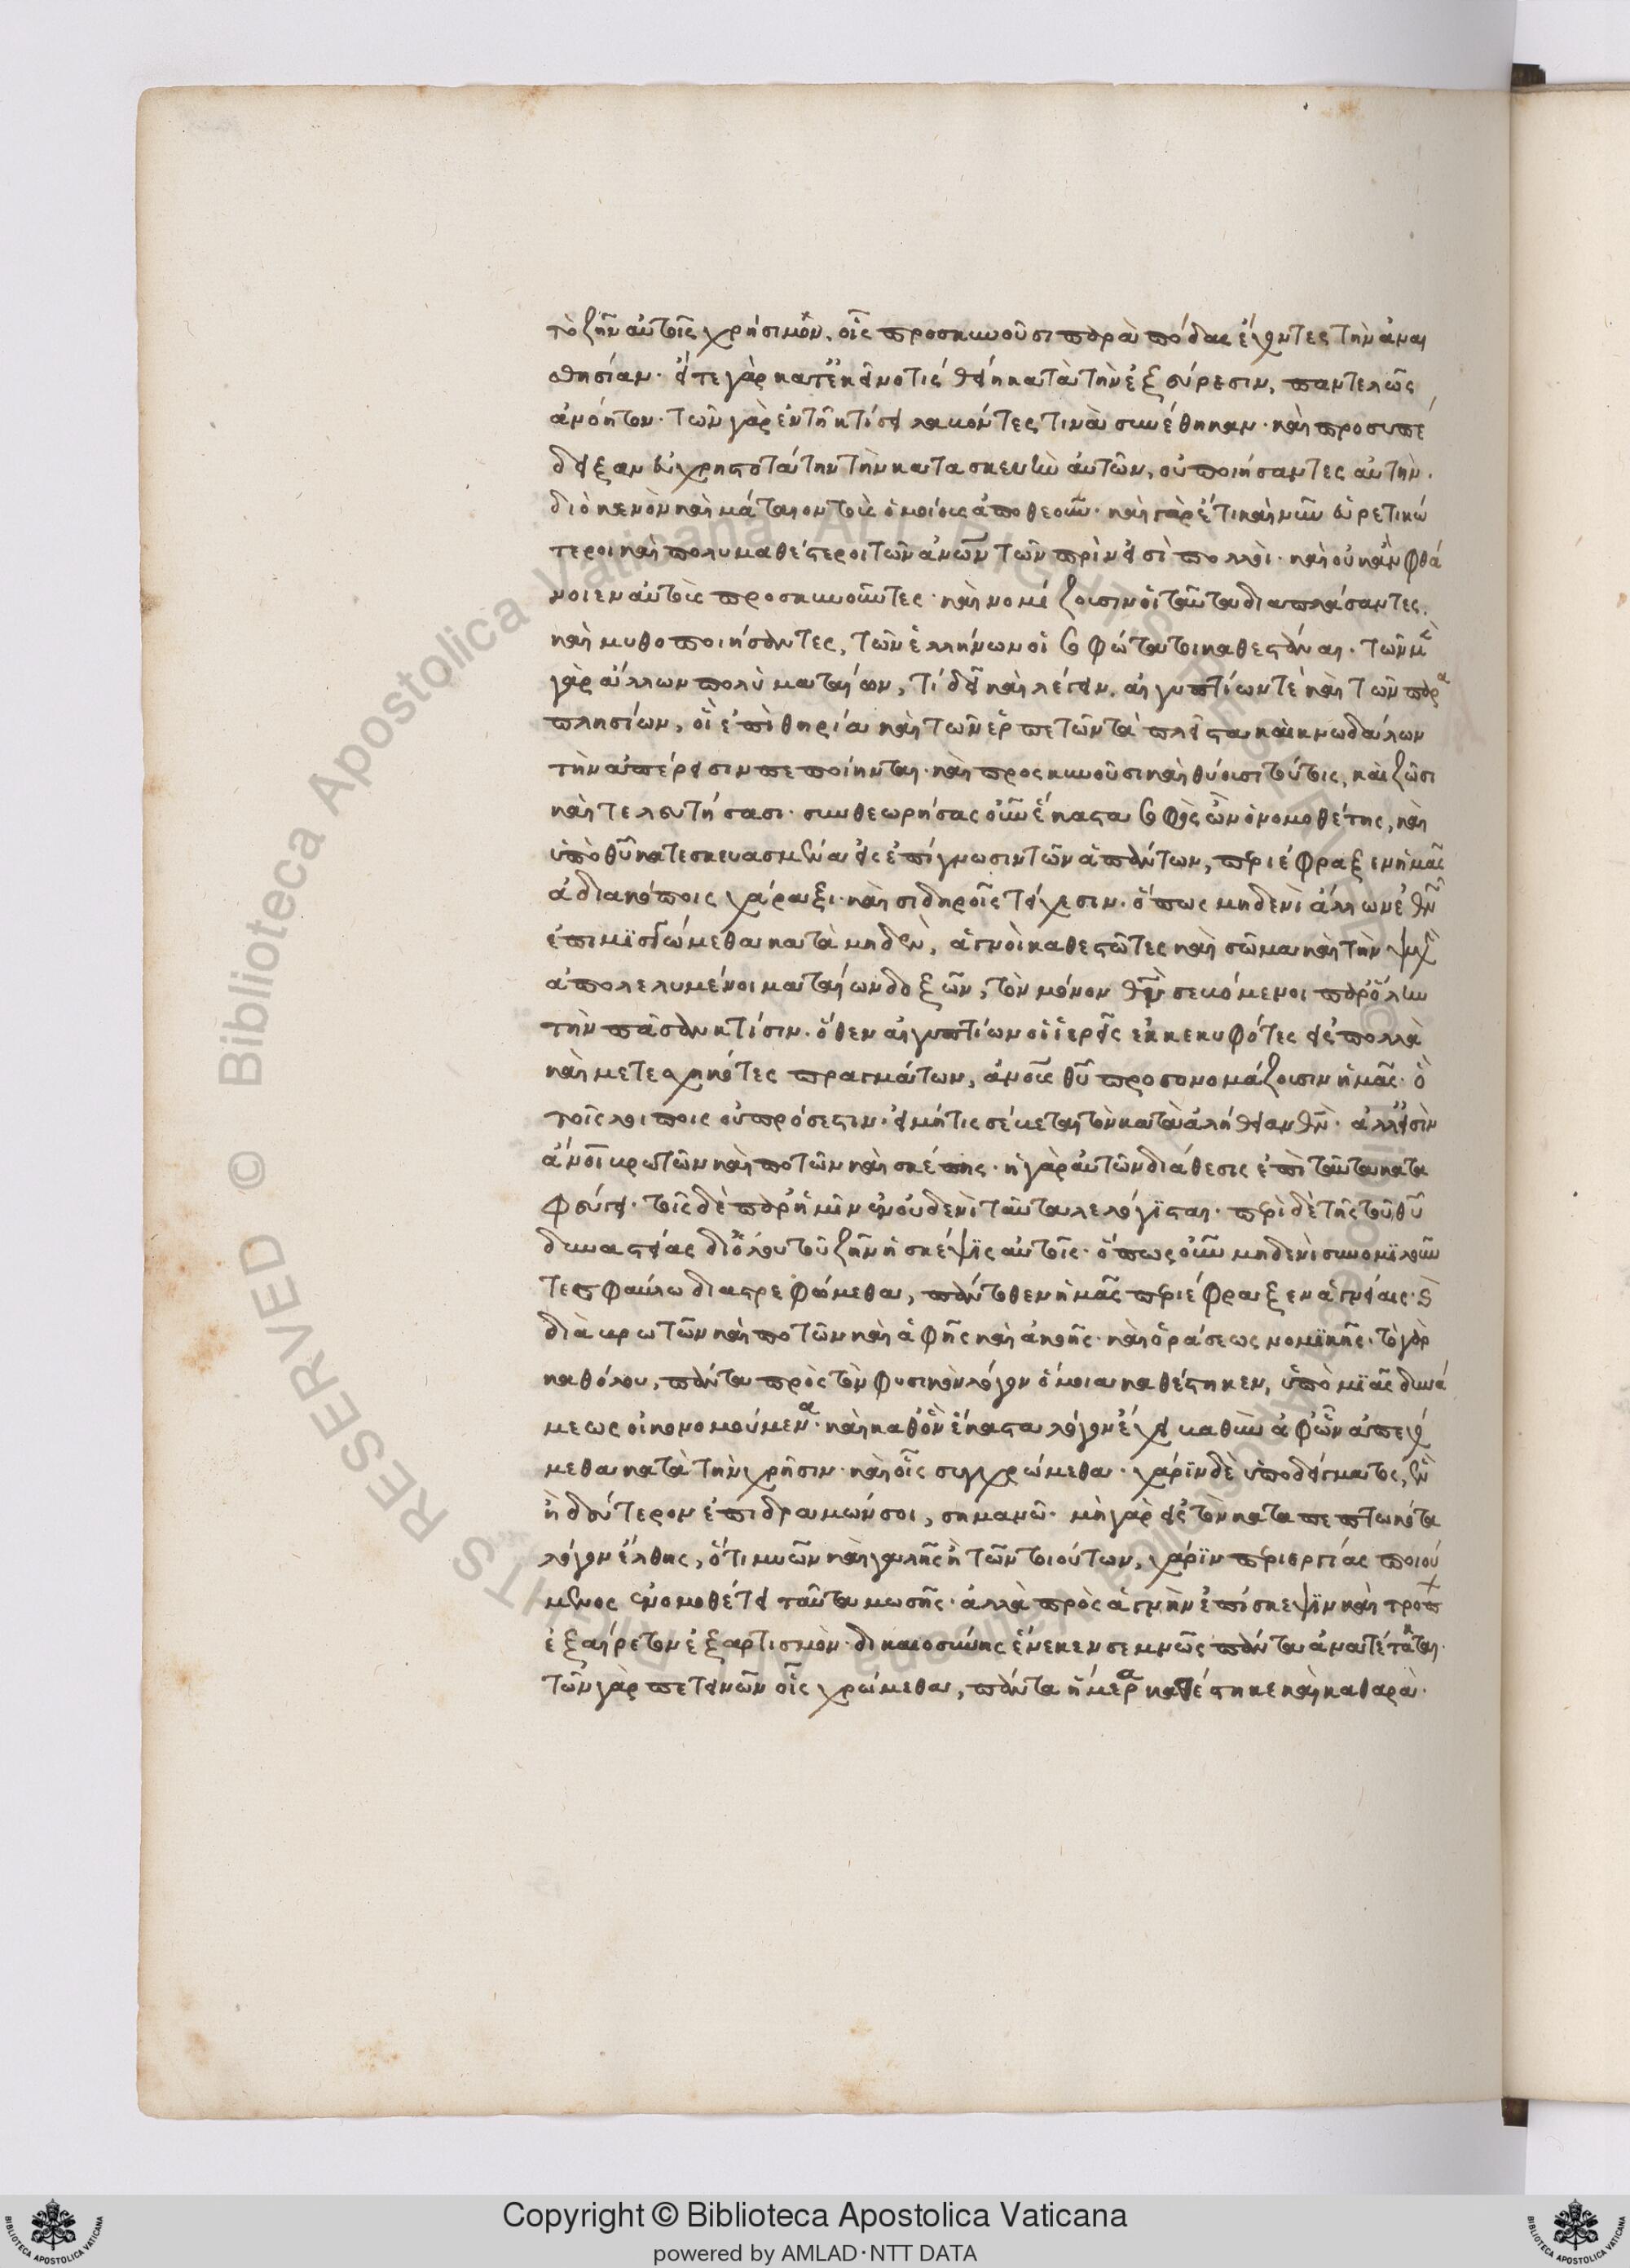 τὸ ζῆν αὐτοῖς χρήσιμον, οἷς προσκυνοῦσι παρὰ πόδας ἔχοντες τὴν ἀναι
σθησίαν· εἴτε γὰρ κατ' ἐκεῖνό τις θείη κατὰ τὴν ἐξεύρεσιν, παντελῶς
ἀνόητον· τῶν γὰρ ἐν τῇ κτίσει λαβόντες τινὰ συνέθηκαν· καὶ προσυπέ
δειξαν εὐχρηστοτάτην τὴν κατασκευὴν αὐτῶν, οὐ ποιήσαντες αὐτήν.
διὸ κενὸν καὶ μάταιον τοὺς ὁμοίους ἀποθεοῦν· καὶ γὰρ ἔτι καὶ νῦν εὑρετικώ
τεροι καὶ πολυμαθέστεροι τῶν ἀνων τῶν πρίν εἰσι πολλοί· καὶ οὐκ ἂν φθά
νοιεν αὐτοὺς προσκυνοῦντες· καὶ νομίζουσιν οἱ ταῦτα διαπλάσαντες
καὶ μυθοποιήσαντες, τῶν ἑλλήνων οἱ σοφώτατοι καθεστάναι· τῶν μὲν
γὰρ ἄλλων πολὺ ματαίων, τί δεῖ καὶ λέγειν, αἰγυπτίων τε καὶ τῶν παρα
πλησίων, οἳ ἐπὶ θηρία καὶ τῶν ἑρπετῶν τὰ πλεῖστα καὶ κνωδάλων
τὴν ἀπέρεισιν πεποίηνται· καὶ προσκυνοῦσι καὶ θύουσι τούτοις, καὶ ζῶσι
καὶ τελευτήσασι· συνθεωρήσας οὖν ἕκαστα σοφὸς ὢν ὁ νομοθέτης, καὶ
ὑπὸ θυ κατεσκευασμένος εἰς ἐπίγνωσιν τῶν ἁπάντων, περιέφραξεν ἡμᾶς
ἀδιακόποις χάραξι· καὶ σιδηροῖς τείχεσιν. ὅπως μηδενὶ ἄλλων ἐθνῶν
ἐπιμισγώμεθα κατὰ μηδέν, ἁγνοὶ καθεστῶτες καὶ σῶμα καὶ τὴν ψυχὴν
ἀπολελυμένοι ματαίων δοξῶν, τὸν μόνον θν σεβόμενοι παρ' ὅλην
τὴν πᾶσαν κτίσιν. ὅθεν αἰγυπτίων οἱ ἱερεῖς ἐκκεκυφότες εἰς πολλὰ
καὶ μετεσχηκότες πραγμάτων, ἀνους θυ προσονομάζουσιν ἡμᾶς· ὃ
τοῖς λοιποῖς οὐ πρόσεστιν· εἰ μή τις σέβεται τὸν κατὰ ἀλήθειαν θν· ἀλλ' εἰσὶν
ἄνοι βρωτῶν καὶ ποτῶν καὶ σκέπης· ἡ γὰρ αὐτῶν διάθεσις ἐπὶ ταῦτα κατα
φεύγει· τοῖς δὲ παρ' ἡμῖν ἐν οὐδενὶ ταῦτα λελόγισται· περὶ δὲ τῆς τοῦ θυ
δυναστείας δι' ὅλου τοῦ ζῆν ἡ σκέψις αὐτοῖς· ὅπως οὖν μηδενὶ συνομιλοῦν
τες φαύλῳ διαστρεφώμεθα, πάντοθεν ἡμᾶς περιέφραξεν ἁγνείαις· καὶ
διὰ βρωτῶν καὶ ποτῶν καὶ ἁφῆς καὶ ἀκοῆς· καὶ ὁράσεως νομικῆς· τὸ γὰρ
καθόλου, πάντα πρὸς τὸν φυσικὸν λόγον ὅμοια καθέστηκεν, ὑπὸ μιᾶς δυνά
μεως οἰκονομούμενα· καὶ καθ' ὃν ἕκαστα λόγον ἔχει βαθὺν ἀφ' ὧν ἀπεχό
μεθα κατὰ τὴν χρῆσιν· καὶ οἷς συγχρώμεθα· χάριν δὲ ὑποδείγματος, ἓν
ἢ δεύτερον ἐπιδραμών σοι, σημανῶ· μὴ γὰρ εἰς τὸν καταπεπτωκότα
λόγον ἔλθῃς, ὅτι μυῶν καὶ γαλῆς ἢ τῶν τοιούτων, χάριν περιεργίας ποιού
μενος ἐνομοθέτει ταῦτα μωσῆς· ἀλλὰ πρὸς ἁγνὴν ἐπίσκεψιν καὶ τροπ
ἐξαίρετον ἐξαρτισμὸν· δικαιοσύνης ἕνεκεν σεμνῶς πάντα ἀνατέτακται·
τῶν γὰρ πετεινῶν οἷς χρώμεθα, πάντα ἥμερα καθέστηκε καὶ καθαρὰ·